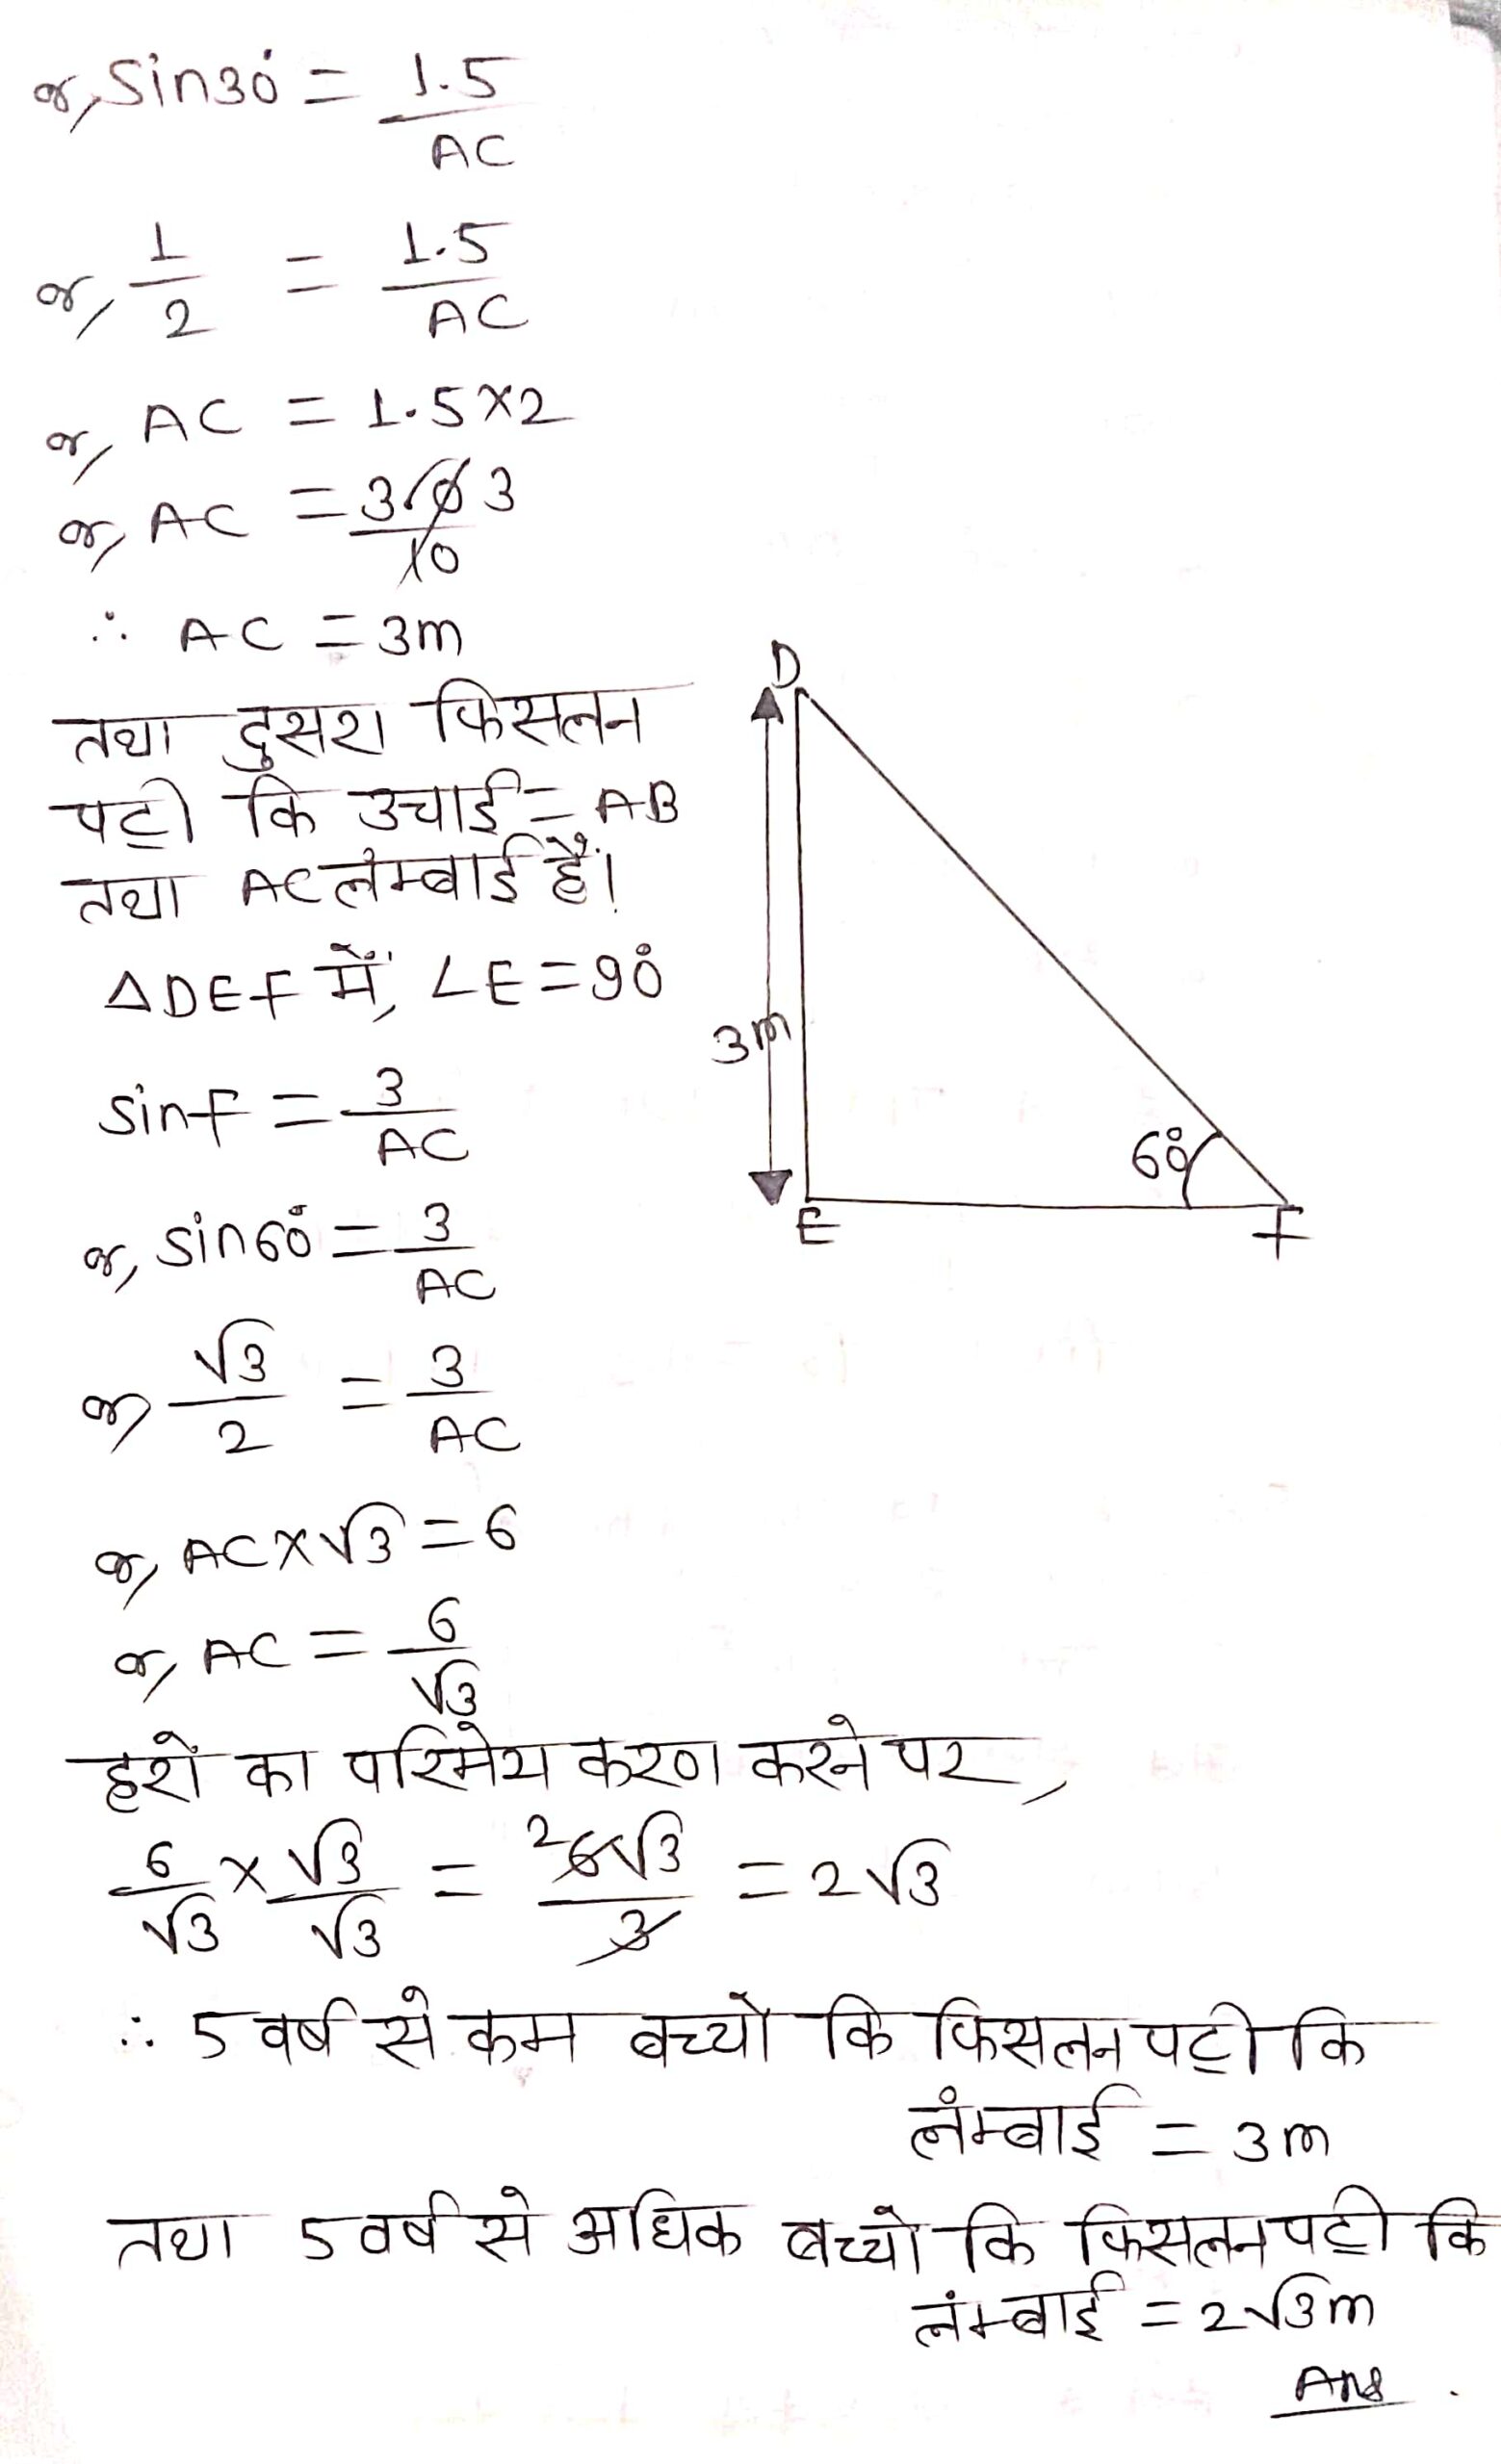 or, Sin30° = 1.5/AC
or, 1/2 = 1.5/AC
or, AC = 1.5×2
or, AC = 3.0/10 3
∴ AC = 3m
तथा दुसरा फिसलन
पट्टी कि उचाई = AB
तथा AC लंम्बाई हैं।
△DEF में, ∠E = 90°
sinF = 3/AC
or, sin60° = 3/AC
or, √3/2 = 3/AC
or, AC×√3 = 6
or, AC = 6/√3
हरों का परिमेय करण करने पर,
6/√3 × √3/√3 = 2 6√3/3 = 2√3
∴ 5 वर्ष से कम बच्चो कि फिसलन पट्टी कि
लंम्बाई = 3m
तथा 5 वर्ष से अधिक बच्चो कि फिसलन पट्टी कि
लंम्बाई = 2√3m
Ans.
D
3m
60°
E
F